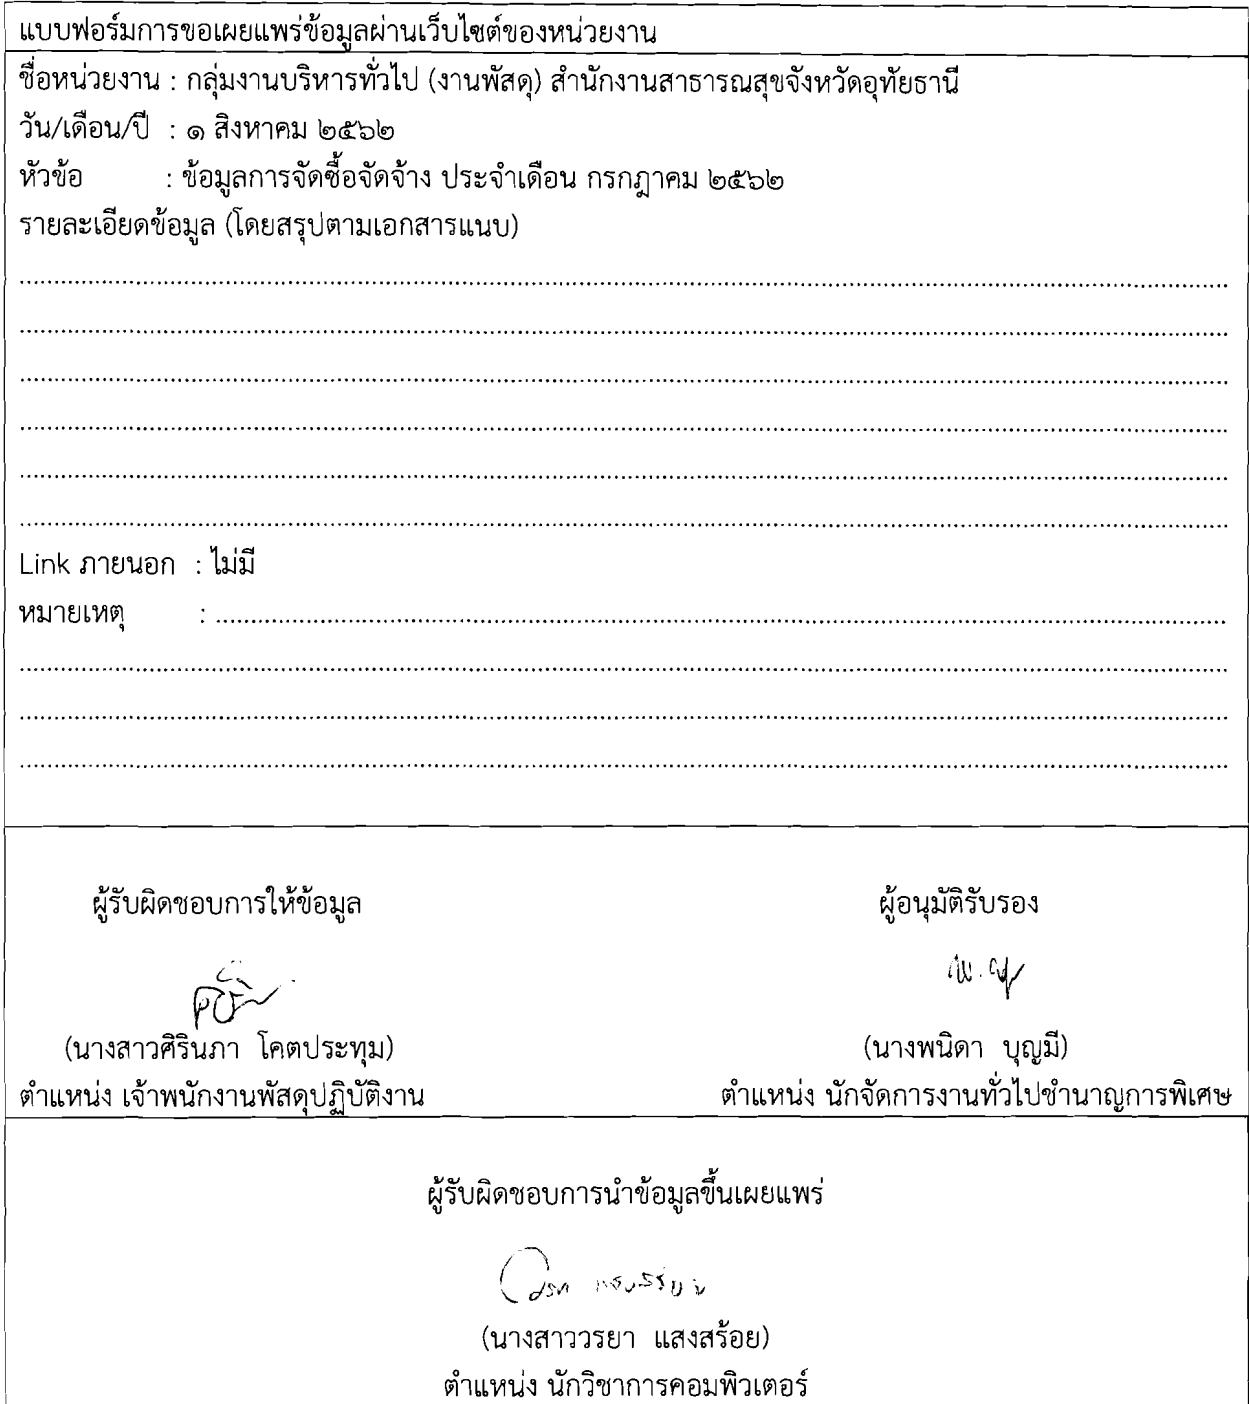 แบบฟอร์มการขอเผยแพร่ข้อมูลผ่านเว็บไซต์ของหน่วยงาน
ชื่อหน่วยงาน : กลุ่มงานบริหารทั่วไป (งานพัสดุ) สำนักงานสาธารณสุขจังหวัดอุทัยธานี
วัน/เดือน/ปี : ๑ สิงหาคม ๒๕๖๒
หัวข้อ : ข้อมูลการจัดซื้อจัดจ้าง ประจำเดือน กรกฎาคม ๒๕๖๒
รายละเอียดข้อมูล (โดยสรุปตามเอกสารแนบ)
Link ภายนอก : ไม่มี
หมายเหตุ :
ผู้รับผิดชอบการให้ข้อมูล ผู้อนุมัติรับรอง
(นางสาวศิรินภา โคตประทุม) (นางพนิดา บุญมี)
ตำแหน่ง เจ้าพนักงานพัสดุปฏิบัติงาน ตำแหน่ง นักจัดการงานทั่วไปชำนาญการพิเศษ
ผู้รับผิดชอบการนำข้อมูลขึ้นเผยแพร่
(นางสาววรยา แสงสร้อย)
ตำแหน่ง นักวิชาการคอมพิวเตอร์